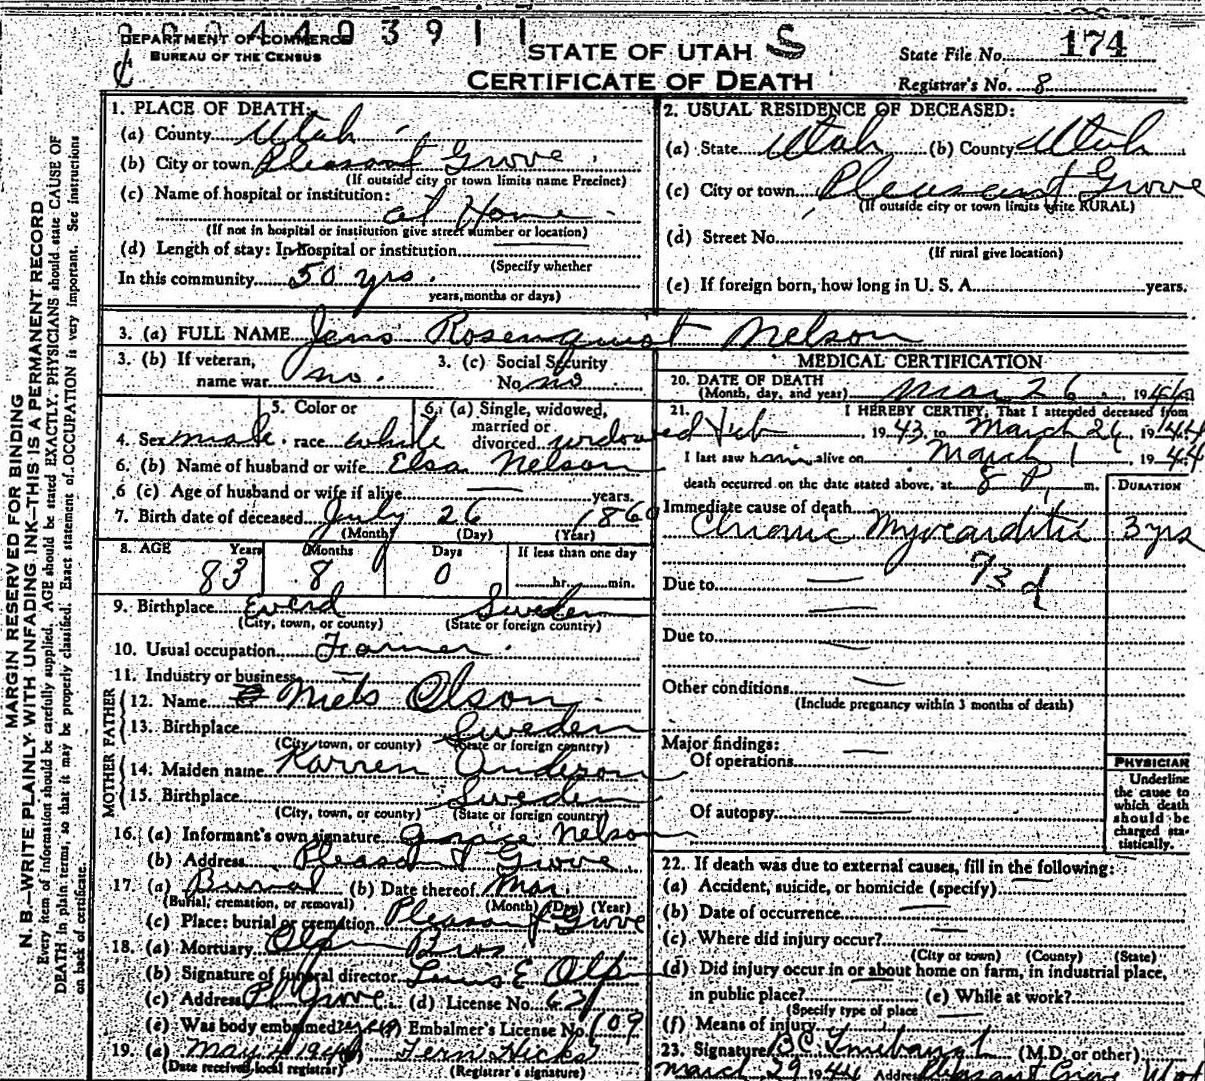 0004403911
DEPARTMENT OF COMMERCE
BUREAU OF THE CENSUS
STATE OF UTAH S
CERTIFICATE OF DEATH
State File No. 174
Registrar's No. 8
MARGIN RESERVED FOR BINDING
N. B.—WRITE PLAINLY WITH UNFADING INK—THIS IS A PERMANENT RECORD
Every item of information should be carefully supplied. AGE should be stated EXACTLY. PHYSICIANS should state CAUSE OF
DEATH in plain terms, so that it may be properly classified. Exact statement of OCCUPATION is very important. See instructions
on back of certificate.
1. PLACE OF DEATH:
(a) County Utah
(b) City or town Pleasant Grove
(If outside city or town limits name Precinct)
(c) Name of hospital or institution:
at Home
(If not in hospital or institution give street number or location)
(d) Length of stay: In hospital or institution
(Specify whether
In this community 50 yrs.
years, months or days)
2. USUAL RESIDENCE OF DECEASED:
(a) State Utah (b) County Utah
(c) City or town Pleasant Grove
(If outside city or town limits write RURAL)
(d) Street No.
(If rural give location)
(e) If foreign born, how long in U. S. A. years.
3. (a) FULL NAME Jens Rosenquist Nelson
3. (b) If veteran, name war no. 3. (c) Social Security No. no
4. Sex male 5. Color or race white 6. (a) Single, widowed, married or divorced widowed
6. (b) Name of husband or wife Elsa Nelson
6 (c) Age of husband or wife if alive — years.
7. Birth date of deceased July 26 1860
(Month) (Day) (Year)
8. AGE Years Months Days If less than one day
83 8 0 hr. min.
9. Birthplace Everd Sweden
(City, town, or county) (State or foreign country)
10. Usual occupation Farmer
11. Industry or business
FATHER
12. Name Niels Olson
13. Birthplace Sweden
(City, town, or county) (State or foreign country)
MOTHER
14. Maiden name Karren Anderson
15. Birthplace Sweden
(City, town, or county) (State or foreign country)
16. (a) Informant's own signature Nelson
(b) Address Pleasant Grove
17. (a) Burial (b) Date thereof Mar.
(Burial, cremation, or removal) (Month) (Day) (Year)
(c) Place: burial or cremation Pleasant Grove
18. (a) Mortuary Olpin Bros
(b) Signature of funeral director E Olpin
(c) Address Pl Grove (d) License No.
(e) Was body embalmed? (f) Embalmer's License No. 109
19. (a) May 4 1944 Fern Hicks
(Date received local registrar) (Registrar's signature)
MEDICAL CERTIFICATION
20. DATE OF DEATH
(Month, day, and year) Mar 26, 1944
21. I HEREBY CERTIFY, That I attended deceased from
Feb 1943 to March 26, 1944
I last saw him alive on March 1 1944
death occurred on the date stated above, at 8 P. m.
DURATION
Immediate cause of death
Chronic Myocarditis 3 yrs
93d
Due to —
Due to —
Other conditions —
(Include pregnancy within 3 months of death)
Major findings:
Of operations —
Of autopsy —
PHYSICIAN
Underline
the cause to
which death
should be
charged sta-
tistically.
22. If death was due to external causes, fill in the following:
(a) Accident, suicide, or homicide (specify) —
(b) Date of occurrence —
(c) Where did injury occur? —
(City or town) (County) (State)
(d) Did injury occur in or about home on farm, in industrial place,
in public place? (e) While at work?
(Specify type of place
(f) Means of injury
23. Signature (M.D. or other)
March 29 1944 Address Pleasant Grove Utah